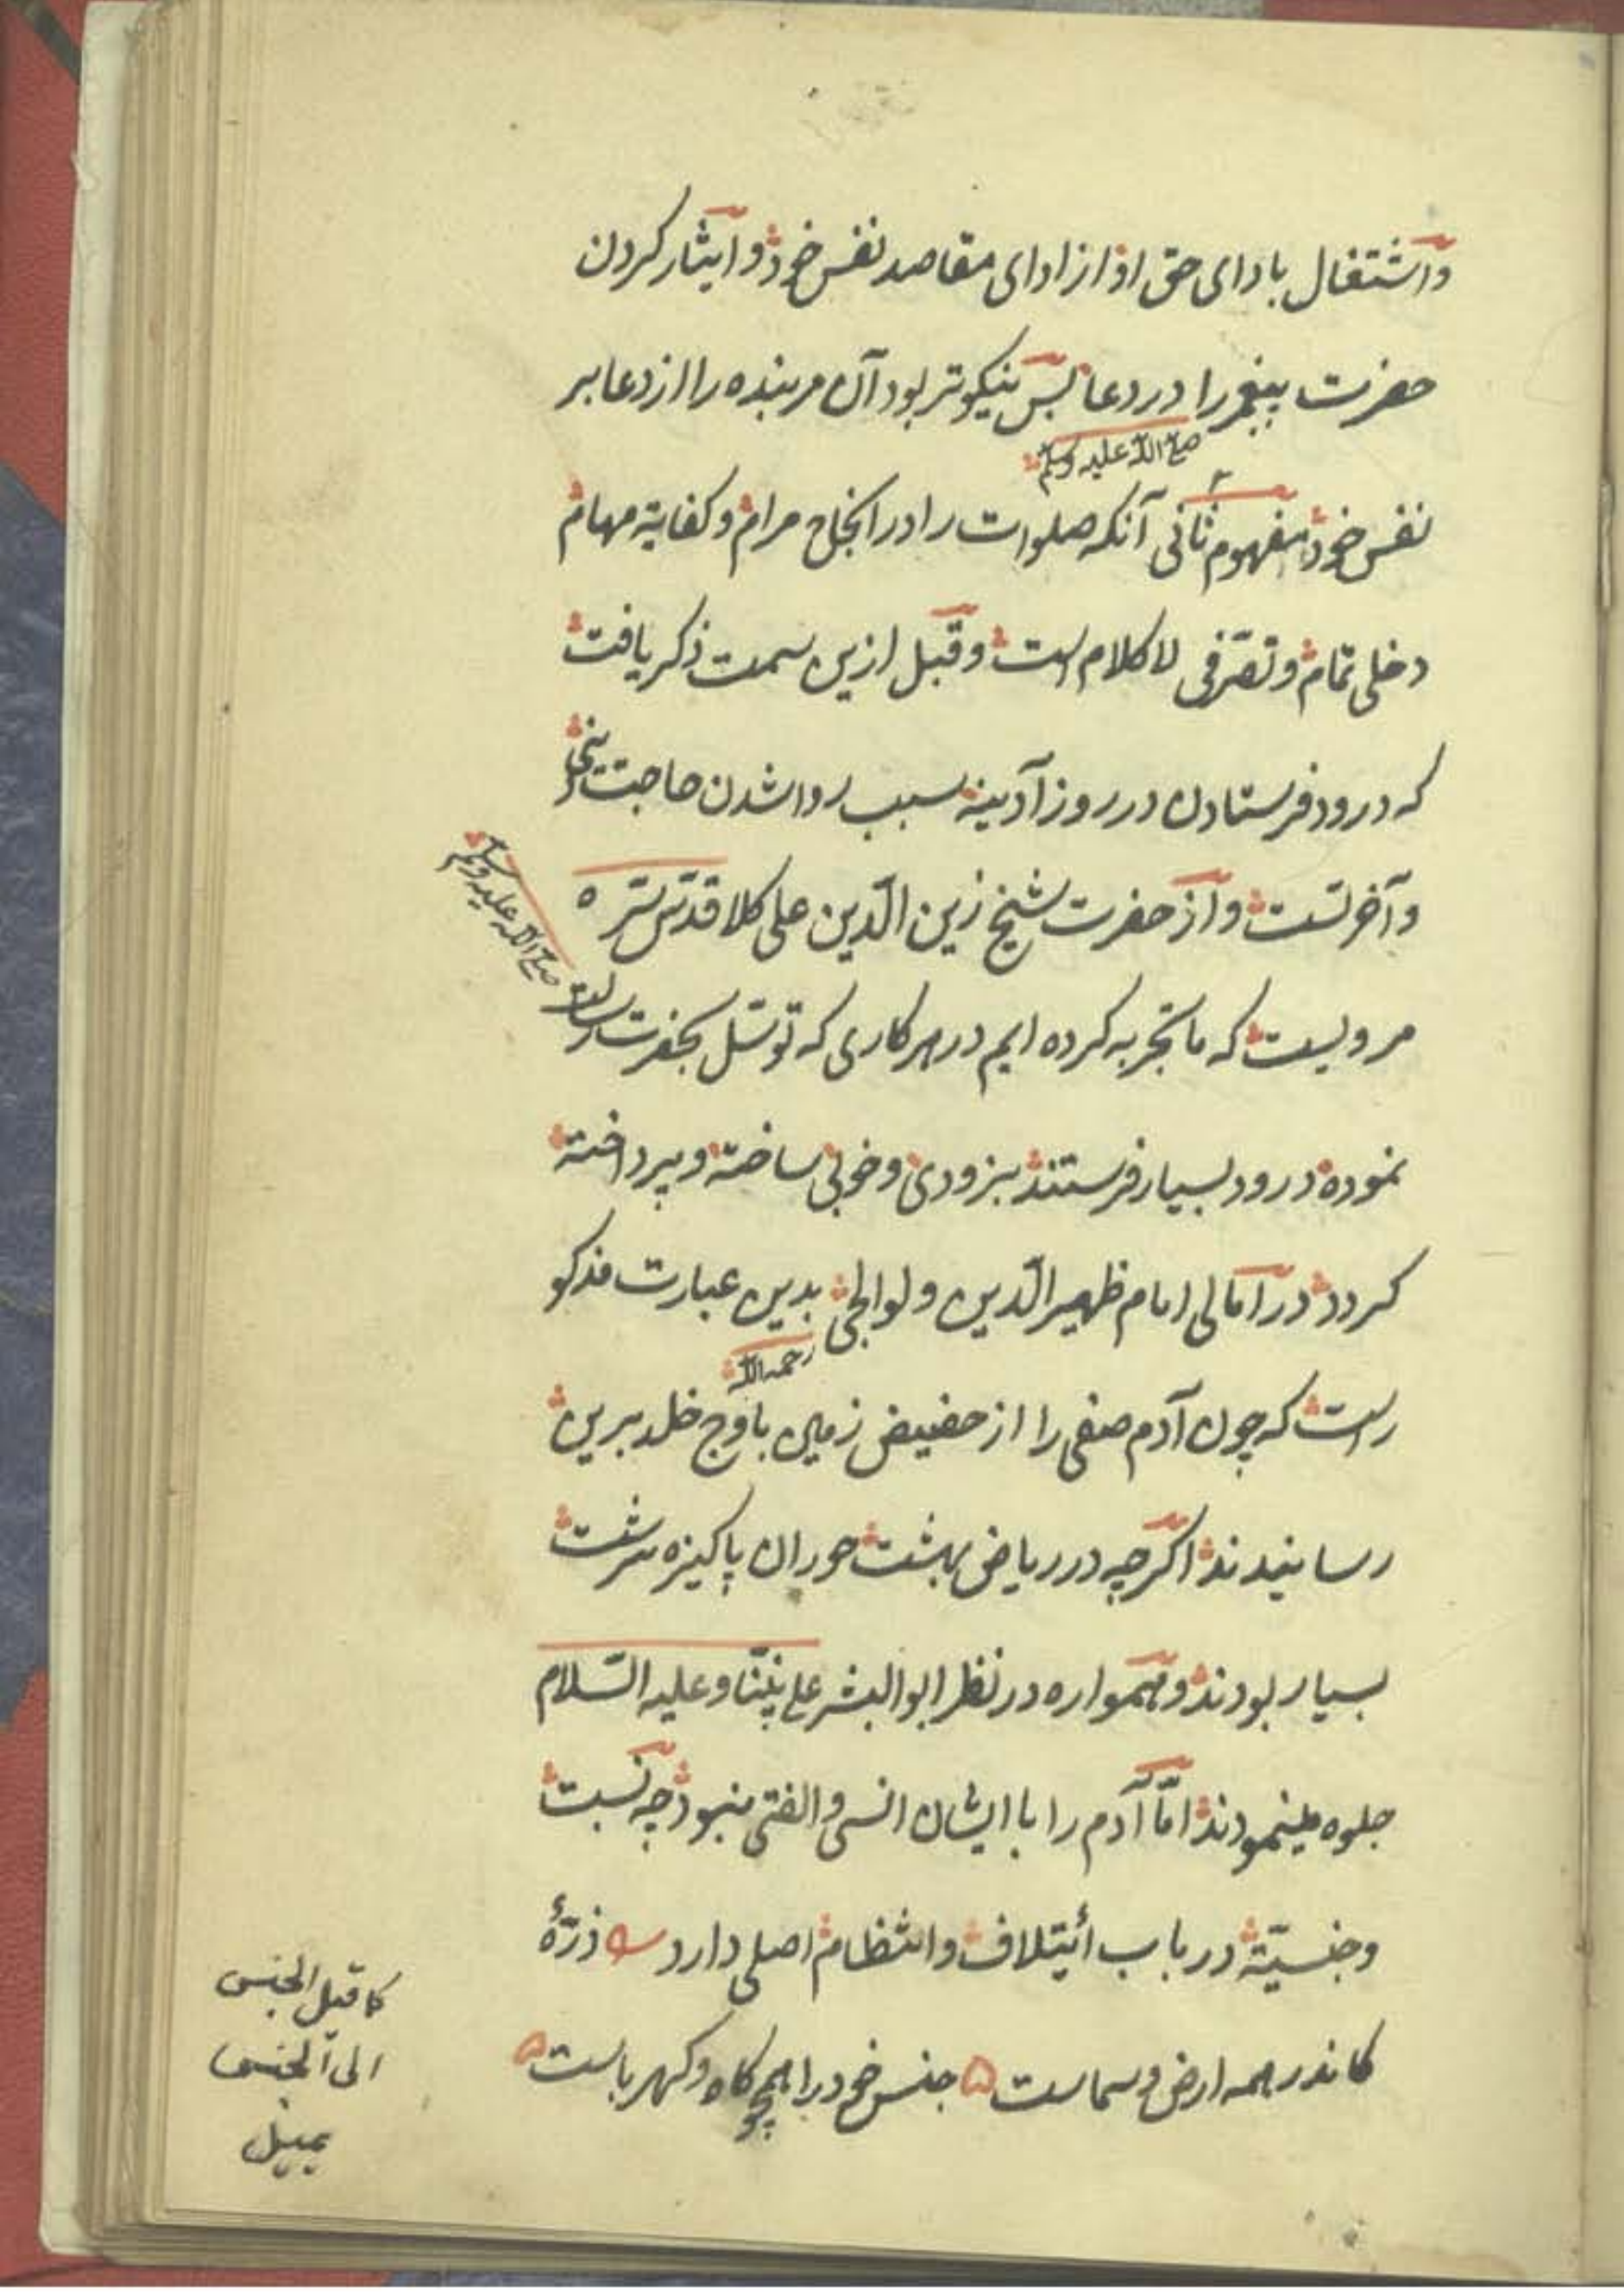 واشتغال بادای حق او از ادای مقاصد نفس خود وایثار کردن
حضرت پیغمبر را در دعا بس نیکوتر بود آن مر بنده را از دعا بر
صلی الله علیه وسلم
نفس خود مفهوم ثانی آنکه صلوات را در انجاح مرام وکفایة مهام
دخلی تمام وتصرفی لا کلام است وقبل ازین سمت ذکر یافت
که درود فرستادن در روز آدینه سبب روا شدن حاجت دنیی
وآخرتست واز حضرت شیخ زین الدین علی کلا قدس سره
مرویست که ما تجربه کرده ایم در هر کاری که توسل بحضرت رسالت
صلی الله علیه وسلم
نموده درود بسیار فرستند بزودی وخوبی ساخته وپرداخته
کردد در امالی امام ظهیر الدین ولوالجی بدین عبارت مذکو
رحمه الله
راست که چون آدم صفی را از حضیض زمین باوج خلد برین
رسانیدند اکرچه در ریاض بهشت حوران پاکیزه سرشت
بسیار بودند وهمواره در نظر ابو البشر علی نبینا وعلیه السلام
جلوه مینمودند اما آدم را با ایشان انس والفتی نبود چه نسبت
وجنسیة در باب أیتلاف وانتظام اصلی دارد ذرهٔ
کاندر همه ارض وسماست جنس خود را همچو کاه وکهرباست
کما قیل الجنس
الی الجنس
یمیل